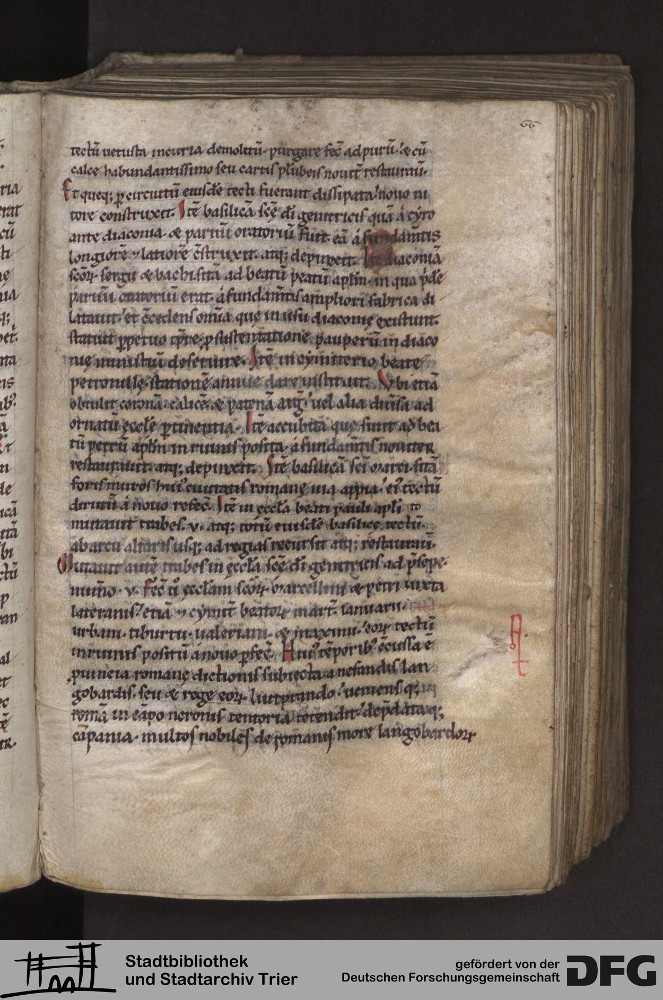 66
tectū uetusta incuria demolitū purgare fec̄ ad purū. & cū
calce habundantissimo seu cartis plūbeis nouit̄ restaurau̅.
Et queq; p̲ circuitū eiusdē tecti fuerant dissipata. nouo ni
tore construxit. Itē basilicā sc̄ę dī genitricis quā á cyro
ante diaconia & paruū oratoriū fuit eā á fundam̄tis
longiorē & latiorē c̄struxit. atq; depinxit. In diaconiā
sc̄or̄ sergii & bachi sitā ad beatū petrū apl̄m. in qua p̄de
paruū oratoriū erat. á fundam̄tis ampliori fabrica di
latauit. et c̄cedens om̄ia que in usu diaconię existunt.
statuit perpetuo tp̄re. p̲ sustentatione pauperū in diaco
nię ministriū deseruire. Itē in cymiterio beatę
petronillę stationē annue dare instituit. Vbi etiā
obtulit coronā. calicē. & patenā arg̅. uel alia diuersa ad
ornatū ęccl̄e p̲tinentia. Itē accubita que sunt ad bea
tū petrū apl̄m in ruinis posita. á fundam̄tis nouiter
restaurauit. atq; depinxit. Itē basilicā sc̄i marci sitā
foris muros hui᾽ ciuitatis romane uia appia. ei᾽ tectū
dirutū á nouo refec̄. Itē in ęccl̄a beati pauli apl̄i
mutauit trabes. v. atq; totū eiusdē basilicę tectū.
ab arcu altaris usq; ad regias recursit atq; restaurau̅.
Mutauit autē trabes in ęccl̄a sc̄ę dī genitricis ad p̄sepe.
numō. v. Fec̄ & ęccl̄iam sc̄or̄ marcellini & petri iuxta
lateranis. etiā & cymit̄ beator̄ mart̄. ianuarii.
urbani. tiburtii. ualeriani. & maximi. eor̄ tectū
in ruinis positū á nouo p̲fec̄. Hui᾽ tēporib᾽ c̄cussa ē
puincia romanę dictionis subiecta a nefandis lan
gobardis. seu & rege eor̄ liutprando. ueniens q;
romā in cāpo neronis tentoria tetendit. dep̄dataq;
cāpania. multos nobiles de romanis more langobardor̄
A
Stadtbibliothek
und Stadtarchiv Trier
gefördert von der
Deutschen Forschungsgemeinschaft
DFG